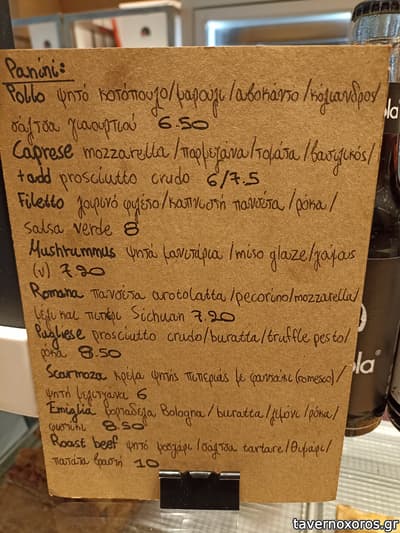 Panini:
Pollo ψητό κοτόπουλο/μαρούλι/αβοκάντο/κόλιανδρος/
σάλτσα γιαουρτιού 6.50
Caprese mozzarella/παρμεζάνα/τομάτα/βασιλικός/
+add prosciutto crudo 6/7.5
Filetto χοιρινό φιλέτο/καπνιστή πανσέτα/ρόκα/
salsa verde 8
Mushrummus ψητά μανιτάρια/miso glaze/χούμους
(v) 7.20
Romana πανσέτα arotolatta/pecorino/mozzarella/
μέλι και πιπέρι Sichuan 7.20
Pugliese prosciutto crudo/buratta/truffle pesto/
ρόκα 8.50
Scarmoza κρέμα ψητής πιπεριάς με φουντούκι (romesco)/
ψητή μελιτζάνα 6
Emiglia μορταδέλα Bologna/buratta/λεμόνι/ρόκα/
φυστίκι 8.50
Roast beef ψητό μοσχάρι/σάλτσα tartare/θυμάρι/
πατάτα βραστή 10
ola
ola®
tavernoxoros.gr